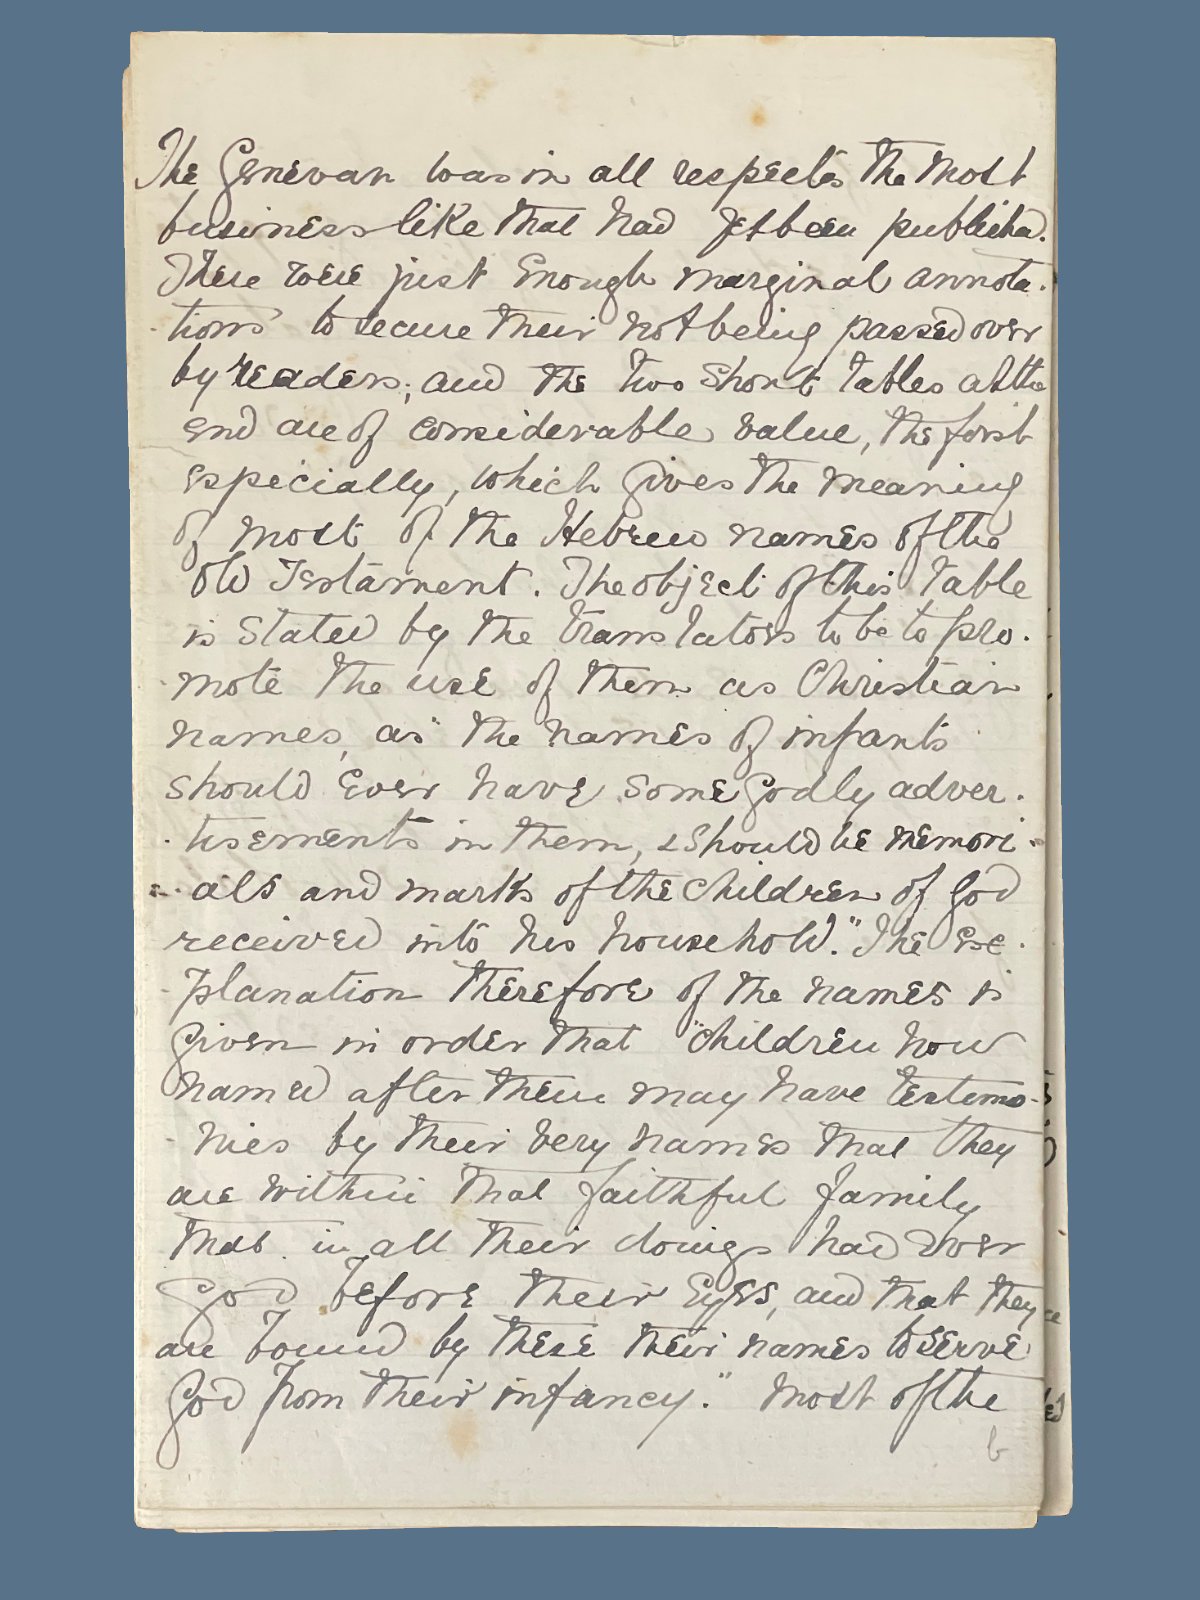 The Genevan was in all respects the most
business like that had yet been publishd.
There were just enough marginal annota-
-tions to secure their not being passed over
by readers; and the two short tables at the
end are of considerable value, the first
especially, which gives the meaning
of most of the Hebrew names of the
Old Testament. The object of this table
is stated by the translators to be to pro-
-mote the use of them as Christian
names, as "the names of infants
should ever have some godly adver-
-tisements in them, & should be memori-
-als and marks of the children of God
received into his household." The ex-
-planation therefore of the names is
given in order that "children now
named after them may have testimo-
-nies by their very names that they
are within that faithful family
that in all their doings had ever
God before their eyes, and that they
are bound by these their names to serve
God from their infancy." Most of the
b